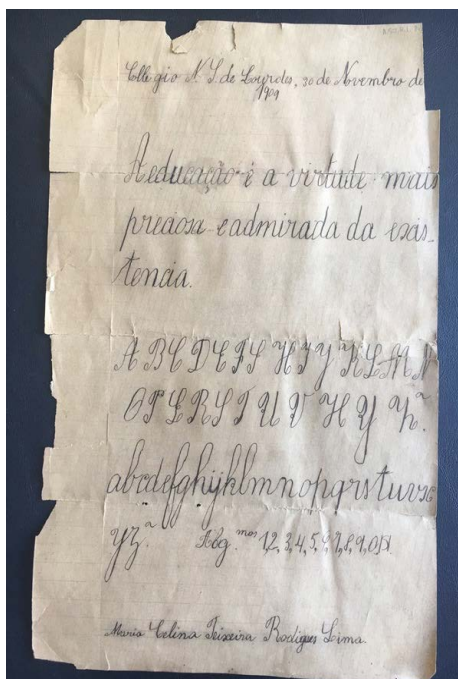 Collegio N. S. de Lourdes, 30 de Novembro de
1909
A educação é a virtude mais
preciosa e admirada da exis-
tencia.
A B C D E F G H I J K L M N
O P Q R S T U V X Y Z.
abcdefghijklmnopqrstuvx
yz. Alg.mos 1,2,3,4,5,6,7,8,9,0
Maria Celina Teixeira Rodrigues Lima.